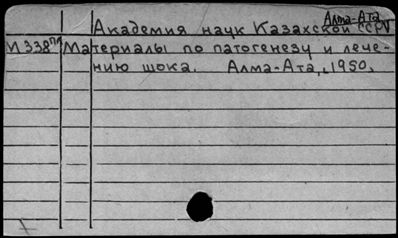 Алма-Ата
Академия наук Казахской ССР
М 338 Материалы по патогенезу и лече-
нию шока. Алма-Ата, 1950.